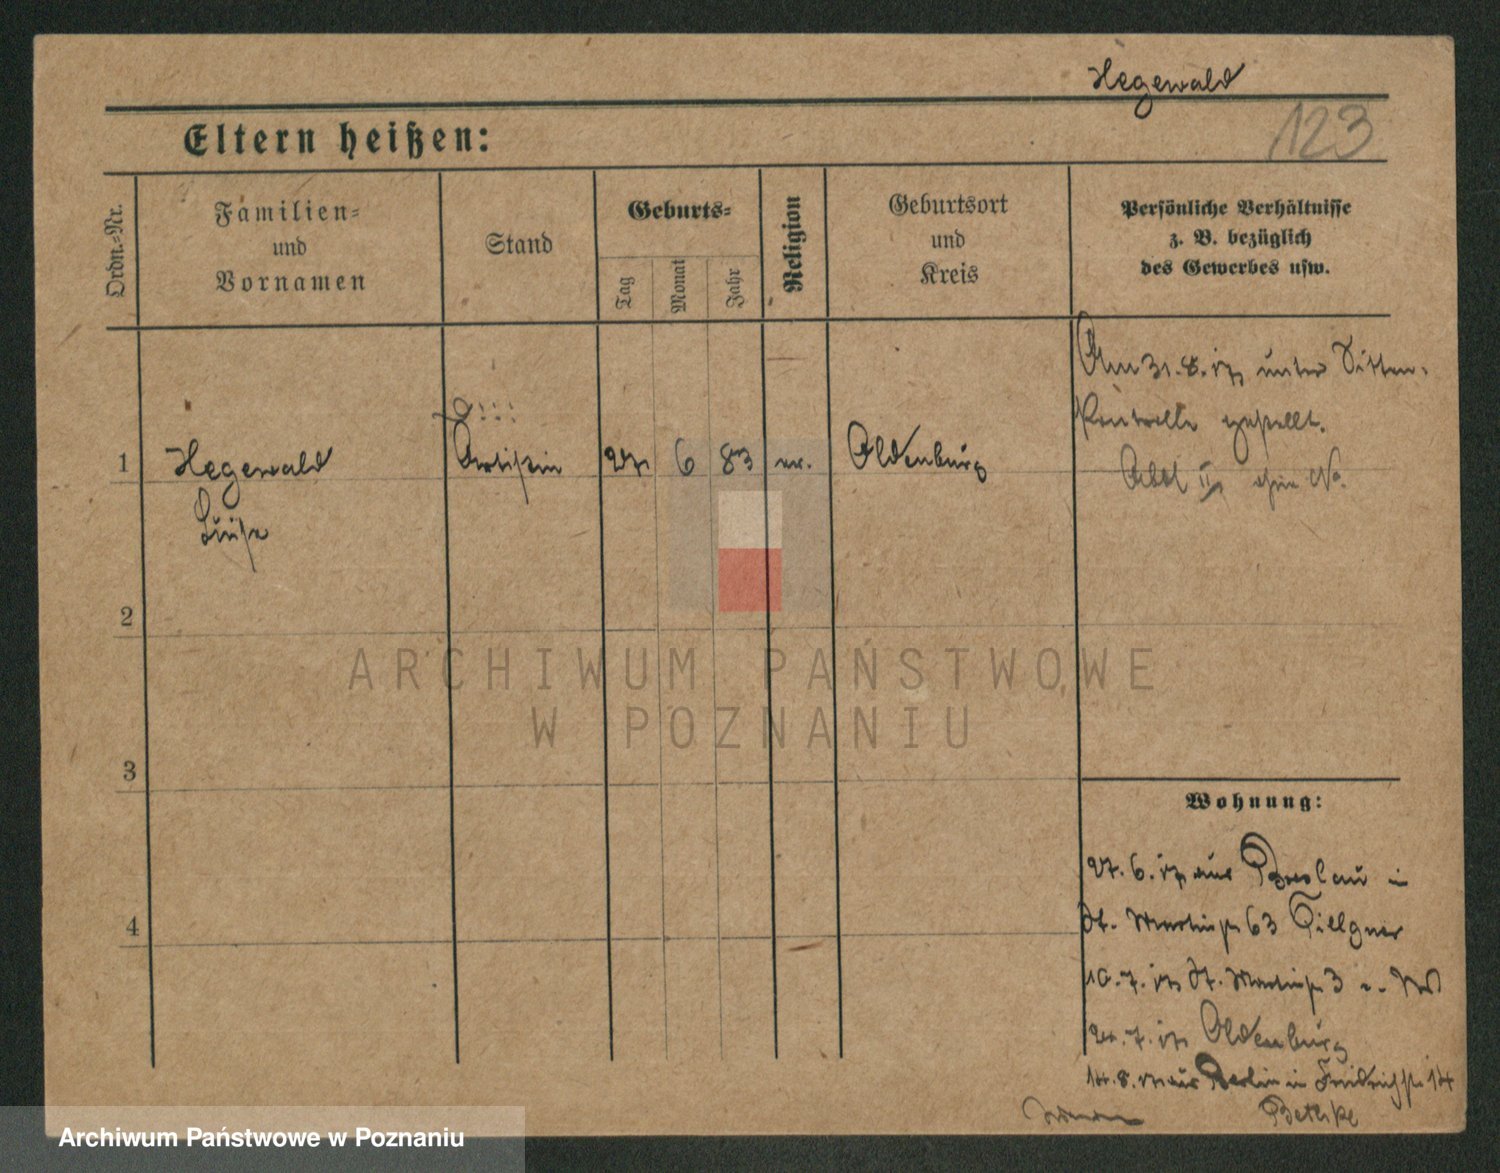 Hegewald
123
Eltern heißen:
Ordn.=Nr.
Familien=
und
Vornamen
Stand
Geburts=
Tag
Monat
Jahr
Religion
Geburtsort
und
Kreis
Persönliche Verhältnisse
z. B. bezüglich
des Gewerbes usw.
1
Hegewald
Luise
Artistin
6
83
Oldenburg
Am 31.8.17 unter Sitten-
kontrolle gestellt.
2
3
4
ARCHIWUM PAŃSTWOWE
W POZNANIU
Wohnung:
27.6.17 aus Breslau in
St. Martinstr 63 Tillgner
10.7.17 St. Martinstr 3
24.7.17 Oldenburg
14.8.17 aus Berlin in Friedrichstr. 14
Bethke
Archiwum Państwowe w Poznaniu